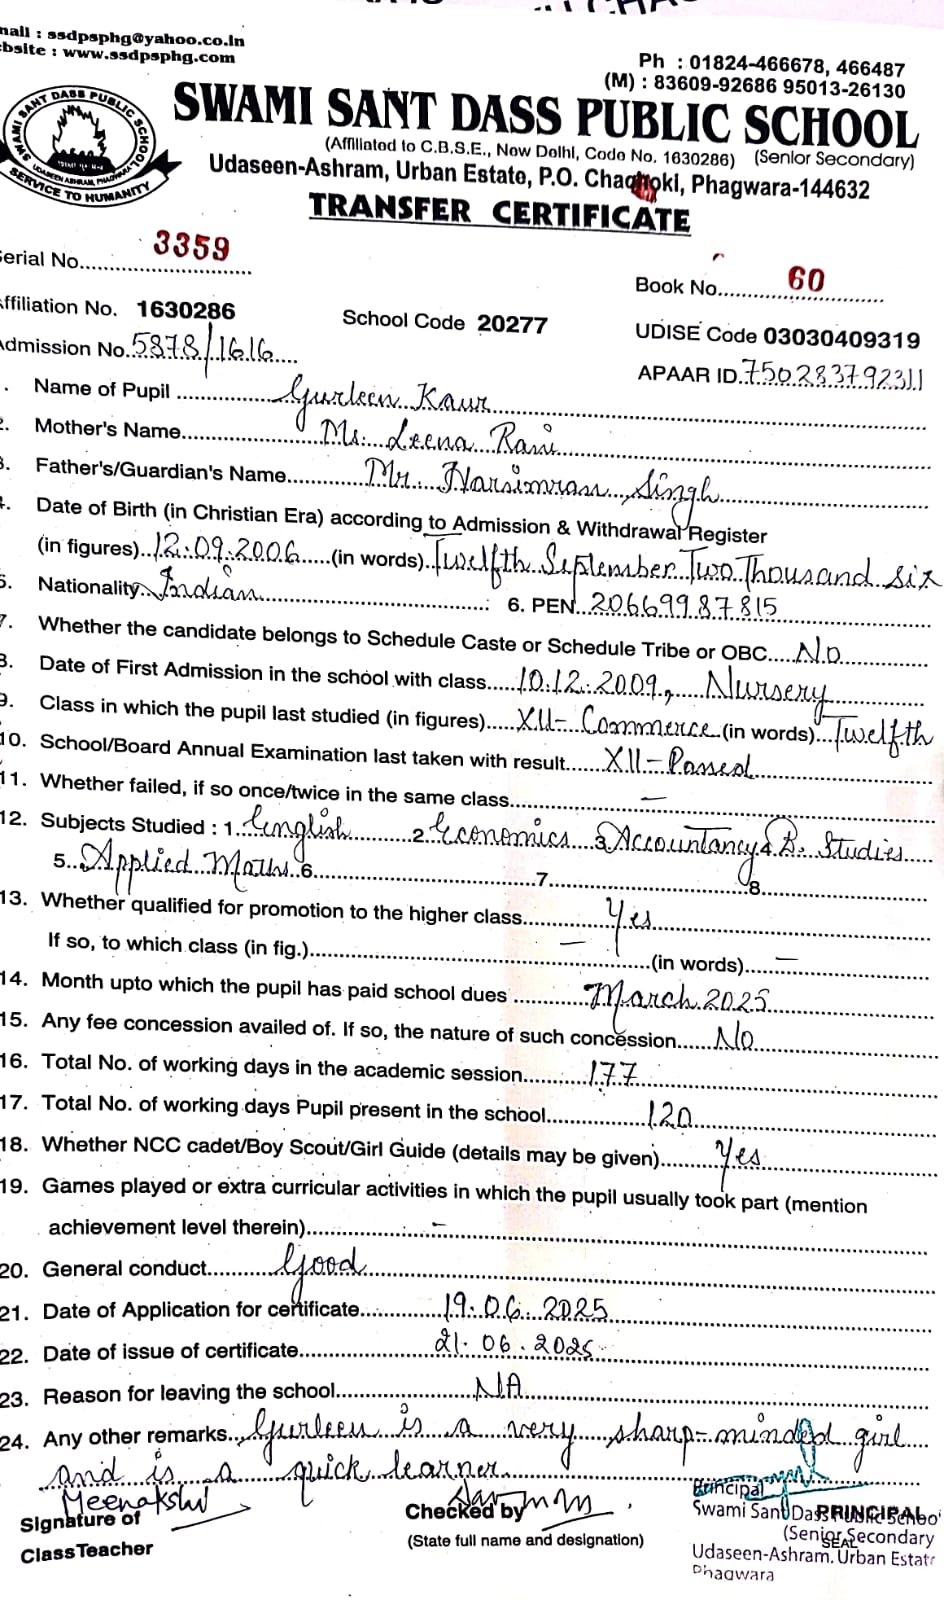 mail : ssdpsphg@yahoo.co.in
ebsite : www.ssdpsphg.com
Ph : 01824-466678, 466487
(M) : 83609-92686 95013-26130
SWAMI SANT DASS PUBLIC SCHOOL
SWAMI SANT DASS PUBLIC SCHOOL
UDASEEN ASHRAM, PHAGWARA
SERVICE TO HUMANITY
(Affiliated to C.B.S.E., New Delhi, Code No. 1630286) (Senior Secondary)
Udaseen-Ashram, Urban Estate, P.O. Chachoki, Phagwara-144632
TRANSFER CERTIFICATE
Serial No. 3359
Book No. 60
Affiliation No. 1630286 School Code 20277 UDISE Code 03030409319
Admission No. 5878/1616 APAAR ID. 750283792311
. Name of Pupil Gurleen Kaur
2. Mother's Name Ms. Leena Rani
3. Father's/Guardian's Name Mr. Narsimran Singh
4. Date of Birth (in Christian Era) according to Admission & Withdrawal Register
(in figures) 12.09.2006 (in words) Twelfth September Two Thousand Six
5. Nationality Indian 6. PEN 20669987815
7. Whether the candidate belongs to Schedule Caste or Schedule Tribe or OBC No
8. Date of First Admission in the school with class 10.12.2009, Nursery
9. Class in which the pupil last studied (in figures) XII- Commerce (in words) Twelfth
10. School/Board Annual Examination last taken with result XII-Passed
11. Whether failed, if so once/twice in the same class —
12. Subjects Studied : 1. English 2. Economics 3. Accountancy 4. B. Studies
5. Applied Maths 6. 7. 8.
13. Whether qualified for promotion to the higher class Yes
If so, to which class (in fig.) — (in words) —
14. Month upto which the pupil has paid school dues March 2025
15. Any fee concession availed of. If so, the nature of such concession No
16. Total No. of working days in the academic session 177
17. Total No. of working days Pupil present in the school 120
18. Whether NCC cadet/Boy Scout/Girl Guide (details may be given) Yes
19. Games played or extra curricular activities in which the pupil usually took part (mention
achievement level therein) -
20. General conduct Good
21. Date of Application for certificate 19.06.2025
22. Date of issue of certificate 21.06.2025
23. Reason for leaving the school NA
24. Any other remarks Gurleen is a very sharp-minded girl
and is a quick learner
Meenakshi
Signature of
Class Teacher
Checked by
(State full name and designation)
Principal
Swami Sant Dass Public Schoo
PRINCIPAL
(Senior Secondary
SEAL
Udaseen-Ashram. Urban Estate
Phagwara